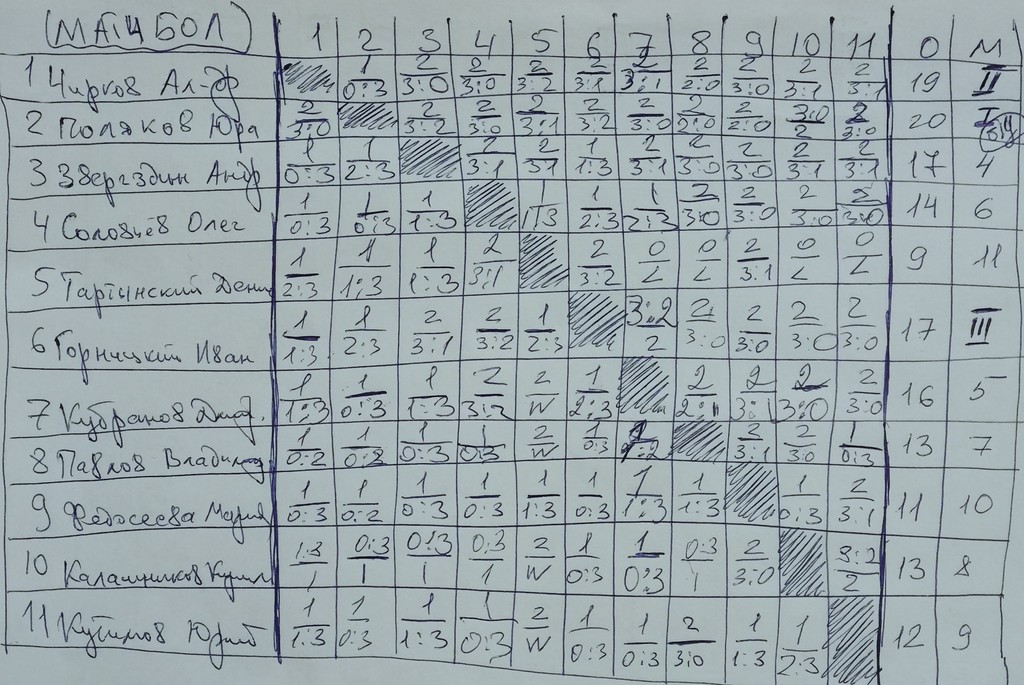 (МАТЧБОЛ) 1 2 3 4 5 6 7 8 9 10 11 О М
1 Чирков Ал-др 1 0:3 2 3:0 2 3:0 2 3:2 2 3:1 2 3:1 2 2:0 2 3:0 2 3:1 2 3:1 19 II
2 Поляков Юра 2 3:0 2 3:2 2 3:0 2 3:1 2 3:2 2 3:0 2 2:0 2 2:0 3:0 2 2 3:0 20 I
3 Андр 1 0:3 1 2:3 2 3:1 2 3:1 1 1:3 2 3:1 2 3:0 2 3:0 2 3:1 2 3:1 17 4
4 Соловьёв Олег 1 0:3 1 0:3 1 1:3 1 1:3 1 2:3 1 2:3 2 3:0 2 3:0 2 3:0 2 3:0 14 6
5 Тартынский Денис 1 2:3 1 1:3 1 1:3 2 3:1 2 3:2 0 L 0 L 2 3:1 0 L 0 L 9 11
6 Горницкий Иван 1 1:3 1 2:3 2 3:1 2 3:2 1 2:3 3:2 2 2 3:0 2 3:0 2 3:0 2 3:0 17 III
7 Кубранов 1 1:3 1 0:3 1 1:3 2 3:2 2 W 1 2:3 2 2:1 2 3:1 2 3:0 2 3:0 16 5
8 Павлов Владимир 1 0:2 1 0:2 1 0:3 1 0:3 2 W 1 0:3 2 3:1 2 3:0 1 0:3 13 7
9 Федосеева Мария 1 0:3 1 0:2 1 0:3 1 0:3 1 1:3 1 0:3 1 1:3 1 1:3 1 0:3 2 3:1 11 10
10 Калашников Кирилл 1:3 1 0:3 1 0:3 1 0:3 1 2 W 1 0:3 1 0:3 0:3 1 2 3:0 3:2 2 13 8
11 1 1:3 1 0:3 1 1:3 1 0:3 2 W 1 0:3 1 0:3 2 3:0 1 1:3 1 2:3 12 9